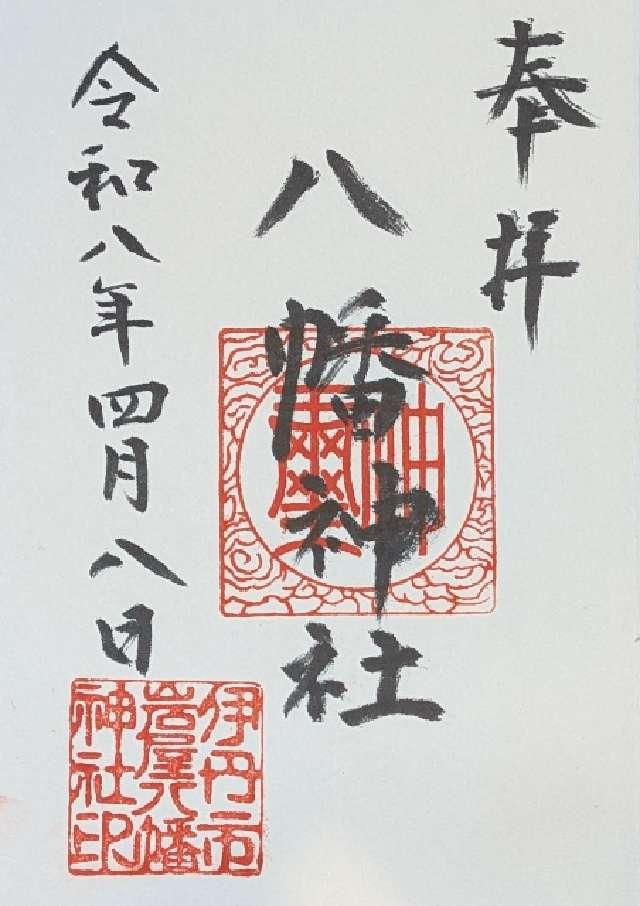 奉拝
八幡神社
令和八年四月八日
伊丹市
岩屋八幡
神社印